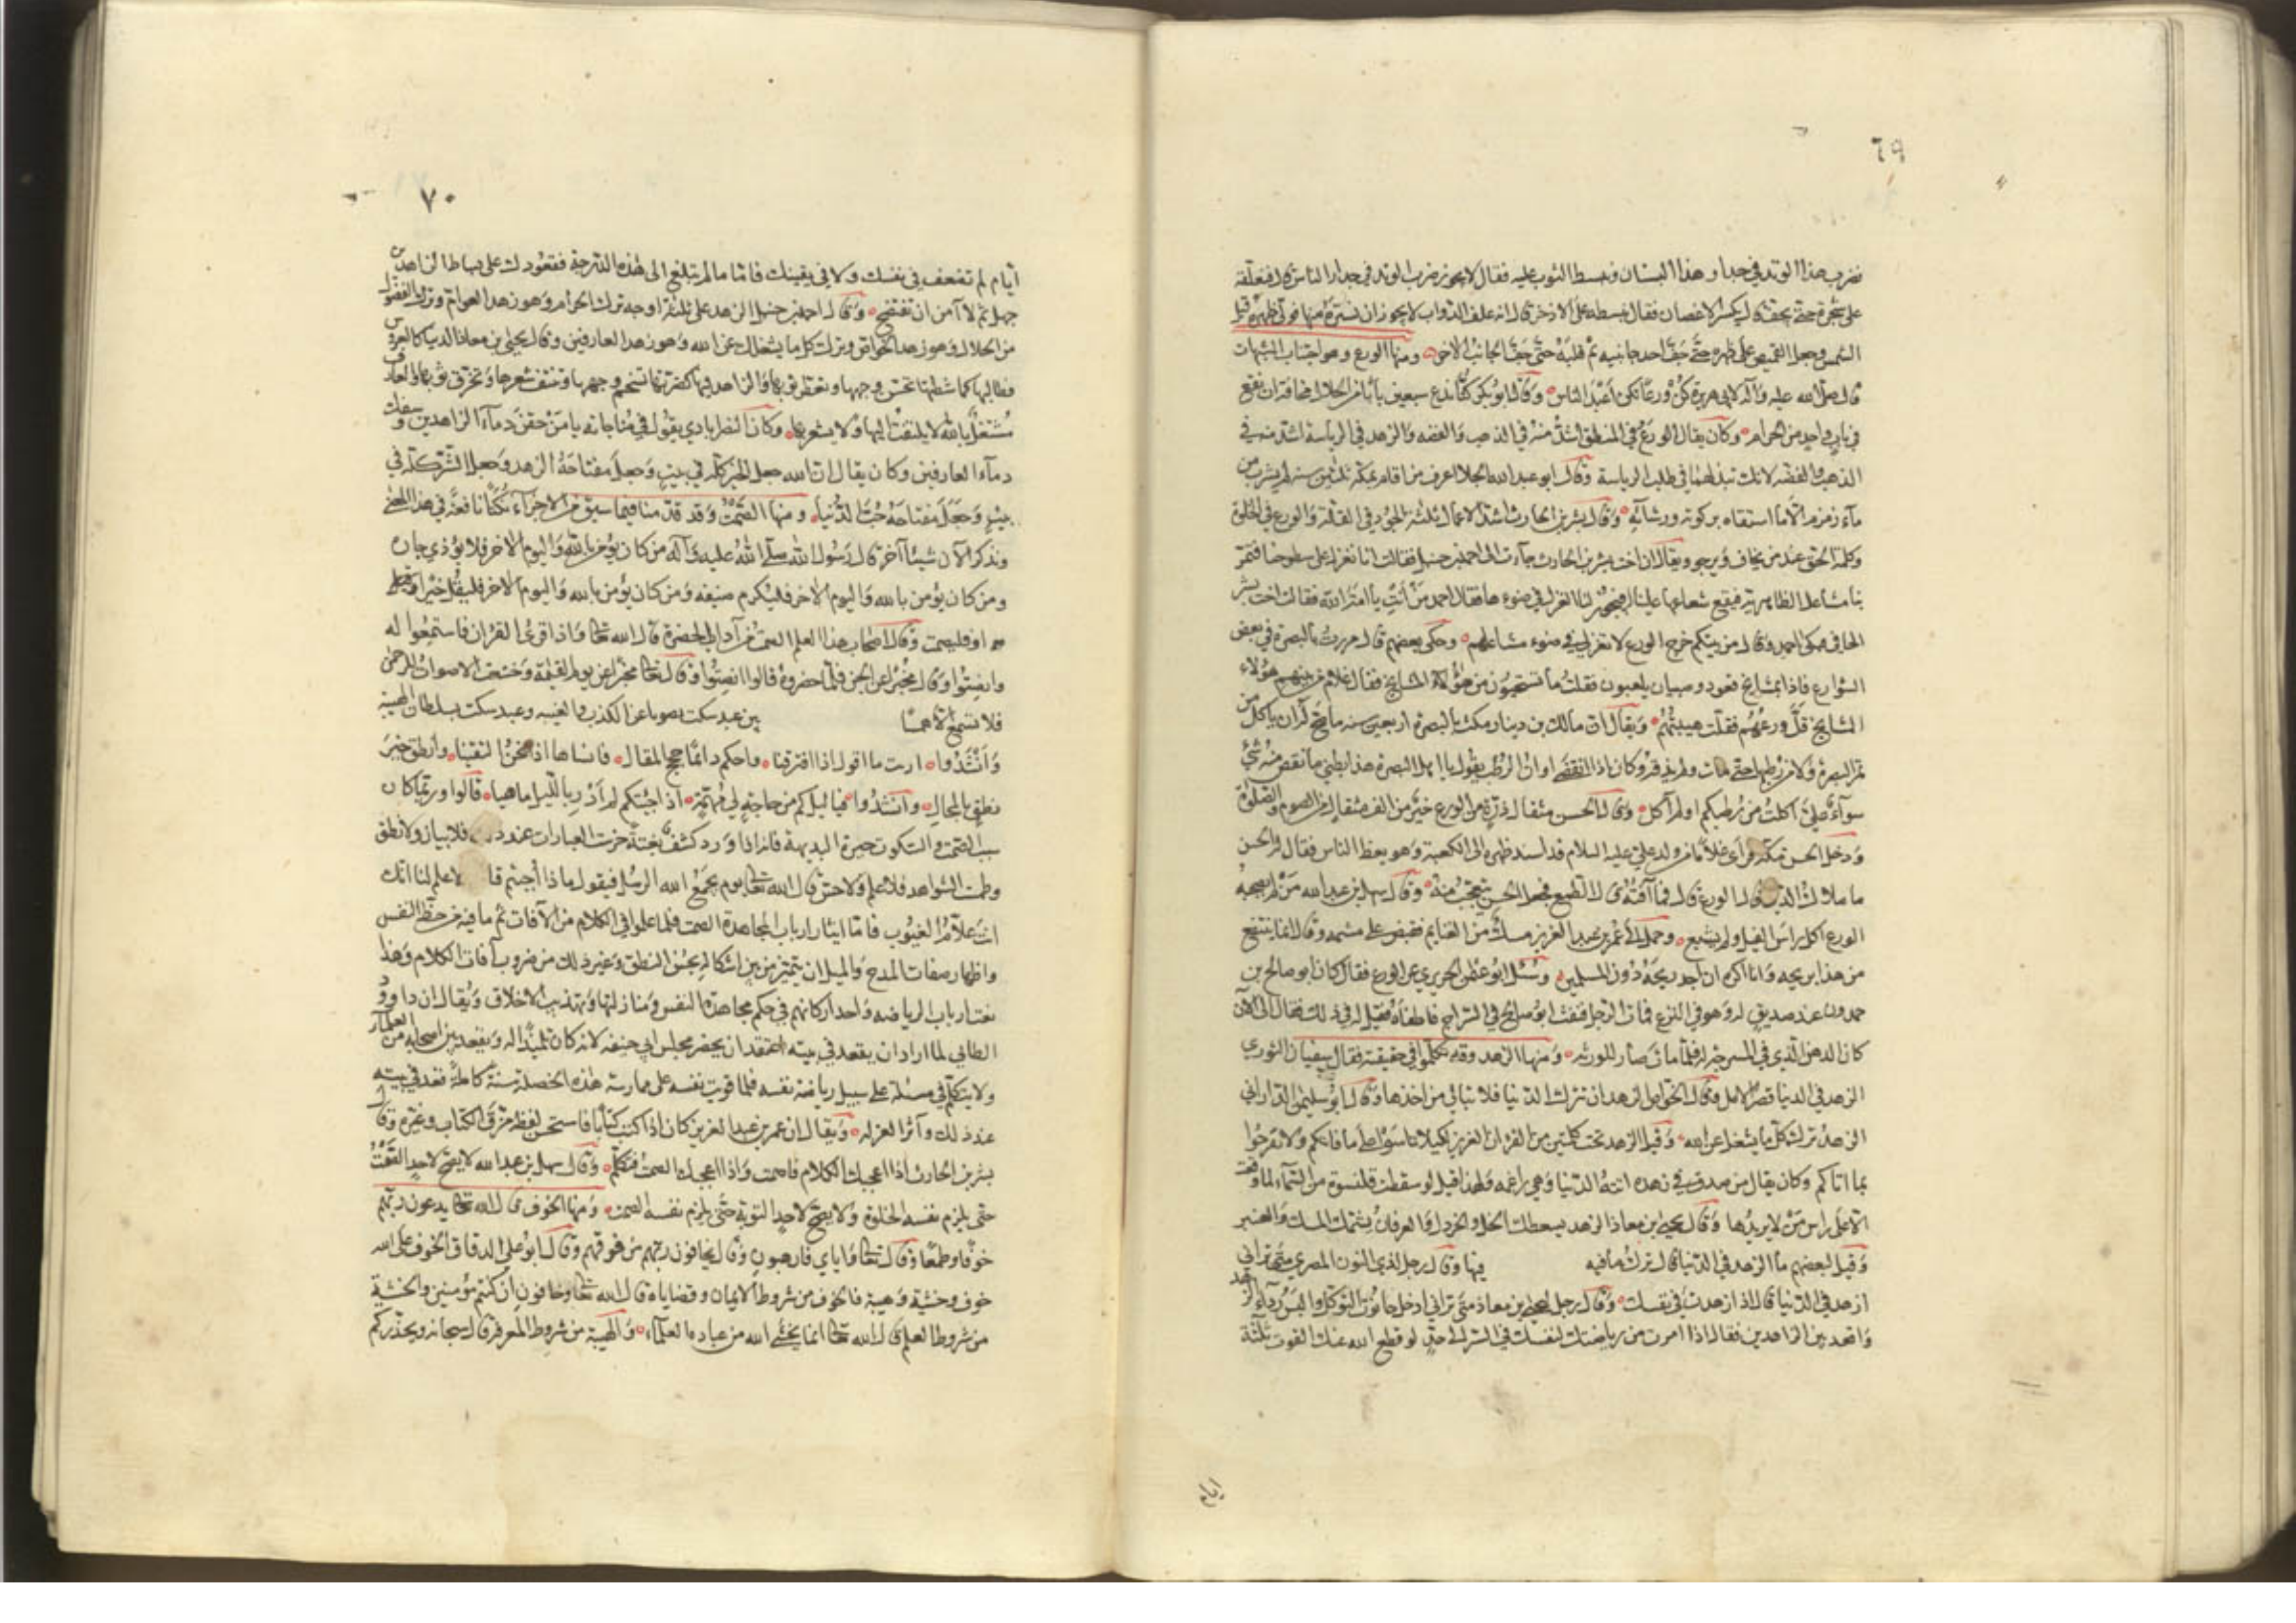 ٦٩
نضرب هذا الوتد في جدار هذا البستان ونبسط الثوب عليه فقال لا يجوز ضرب الوتد في جدار الناس قال فنعلقه
على شجرة حتى يجف قال يكسر الاغصان فقال نبسطه على الاذخر قال انه علف الدواب لا يجوز ان نستره منها فولى ظهره قبل
الشمس وجعل القميص على ظهره حتى جف احد جانبيه ثم قلبه حتى جف الجانب الاخر ومنها الورع وهو اجتناب الشبهات
قال صلى الله عليه وآله لابي هريرة كن ورعا تكن اعبد الناس وقال ابو بكر كنا ندع سبعين بابا من الحلال مخافة ان نقع
في باب واحد من الحرام وكان يقال الورع في المنطق اشد منه في الذهب والفضه والزهد في الرياسة اشد منه في
الذهب والفضه لانك تبذلهما في طلب الرياسة وقال ابو عبد الله الجلا اعرف من اقام بمكة ثلثين سنه لم يشرب من
ماء زمزم الا ما استقاه بركوته ورشائه وقال بشر بن الحارث اشد الاعمال ثلثه الجود في القلة والورع في الخلوة
وكلمة الحق عند من يخاف ويرجو ويقال ان اخت بشر بن الحارث جاءت الى احمد بن حنبل فقالت انا نغزل على سطوحنا فتمر
بنا مشاعل الظاهرية فيقع شعاعها علينا افيجوز لنا الغزل في ضوءها فقال احمد من انت يا امة الله فقالت اخت بشر
الحافي فبكى احمد وقال من بيتكم خرج الورع لا تغزلي في ضوء مشاعلهم وحكى بعضهم قال مررت بالبصرة في بعض
الشوارع فاذا بمشايخ قعود وصبيان يلعبون فقلت ما تستحيون من هؤلاء المشايخ فقال غلام من بينهم هؤلاء
المشايخ قل ورعهم فقلت هيبتهم ويقال ان مالك بن دينار مكث بالبصرة اربعين سنه ما صح له ان ياكل من
تمر البصرة ولا من رطبها حتى مات ولم يذقه وكان اذا انقضى اوان الرطب يقول يا اهل البصرة هذا بطني ما نقص منه شئ
سوآء علي اكلت من رطبكم او لم آكل وقال الحسن مثقال ذرة من الورع خير من الف مثقال من الصوم والصلوة
ودخل الحسن مكة فراى غلاما من ولد علي عليه السلام قد اسند ظهره الى الكعبة وهو يعظ الناس فقال له الحسن
ما ملاك الدين قال الورع قال فما آفته قال الطمع فجعل الحسن يتعجب منه وقال سهل بن عبد الله من لم يصحبه
الورع اكل راس الفيل ولم يشبع وحمل الى عمر بن عبد العزيز مسك من الغنايم فقبض على مشمه وقال انما ينتفع
من هذا بريحه وانا اكره ان اجد ريحه دون المسلمين وسئل ابو عثمن الحريري عن الورع فقال كان ابو صالح بن
حمدون عند صديق له وهو في النزع فمات الرجل فنفث ابو صالح في السراج فاطفأه فقيل له في ذلك فقال الى الآن
كان الدهن الذي في المسرجة له فلما مات صار للورثه ومنها الزهد وقد تكلموا في حقيقته فقال سفيان الثوري
الزهد في الدنيا قصر الامل وقال الخواص الزهد ان تترك الدنيا فلا تبالي من اخذها وقال ابو سليمن الداراني
الزهد ترك كل ما يشغل عن الله وقيل الزهد تحت كلمتين من القرآن العزيز لكيلا تاسوا على ما فاتكم ولا تفرحوا
بما اتاكم وكان يقال من صدق في زهده اتته الدنيا وهي راغمه ولهذا قيل لو سقطت قلنسوة من السماء لما وقعت
الا على راس من لا يريدها وقال يحيى بن معاذ الزهد يسعطك الخل والخردل والعرفان يشمك المسك والعنبر
وقيل لبعضهم ما الزهد في الدنيا قال ترك ما فيه فيها وقال رجل لذي النون المصري متى تراني
ازهد في الدنيا قال اذا زهدت في نفسك وقال رجل ليحيى بن معاذ متى تراني ادخل حانوت التوكل والبس رداء الزهد
واقعد بين الزاهدين فقال اذا صرت من رياضتك لنفسك في السر الى حد لو قطع الله عنك القوت ثلثة
ايام
٧٠
ايام لم تضعف في نفسك ولا في يقينك فاما ما لم تبلغ الى هذه الدرجة فقعودك على بساط الزاهدين
جهل ثم لا آمن ان تفتضح وقال احمد بن حنبل الزهد على ثلثة اوجه ترك الحرام وهو زهد العوام وترك الفضول
من الحلال وهو زهد الخواص وترك كل ما يشغلك عن الله وهو زهد العارفين وقال يحيى بن معاذ الدنيا كالعروس
فطالبها كماشطتها تحسن وجهها وتعطر ثوبها والزاهد فيها كضرتها تسخم وجهها وتنتف شعرها وتخرق ثوبها والعارف
مشتغل بالله لا يلتفت اليها ولا يشعر بها وكان النصرابادي يقول في مناجاته يا من حقن دماء الزاهدين وسفك
دماء العارفين وكان يقال ان الله جعل الخير كله في بيت وجعل مفتاحه الزهد وجعل الشر كله في
بيت وجعل مفتاحه حب الدنيا ومنها الصمت وقد قدمنا فيما سبق من الاجزاء نكتا نافعة في هذا المعنى
ونذكر الآن شيئا آخر قال رسول الله صلى الله عليه وآله من كان يؤمن بالله واليوم الاخر فلا يؤذي جاره
ومن كان يؤمن بالله واليوم الاخر فليكرم ضيفه ومن كان يؤمن بالله واليوم الاخر فليقل خيرا
او فليصمت وقال اصحاب هذا العلم الصمت من آداب الحضرة قال الله تعالى واذا قرئ القرآن فاستمعوا له
وانصتوا وقال مخبرا عن الجن فلما حضروه قالوا انصتوا وقال تعالى مخبرا عن يوم القيمة وخشعت الاصوات للرحمن
فلا تسمع الا همسا بين عبد سكت تصونا عن الكذب والغيبه وعبد سكت لسلطان الهيبة
وانشدوا ارتب ما اقول اذا افترقنا واحكم دائما حجج المقال فانساها اذا نحن التقينا وانطق حين
نطق بالمحال وانشدوا فيا ليل كم من حاجة لي مهمة اذا جئتكم لم ادر يا ليل ما هيا قالوا وربما كان
سبب الصمت والسكوت حيرة البديهة فانه اذا ورد كشف بغتة خرست العبارات عند فلا بيان ولا نطق
وطمست الشواهد فلا علم ولا حس قال الله تعالى يوم يجمع الله الرسل فيقول ماذا اجبتم قا لا علم لنا انك
انت علام الغيوب فاما ايثار ارباب المجاهدة الصمت فلما علموا في الكلام من الآفات ثم ما فيه من حظ النفس
واظهار صفات المدح والميل ان يتميز من بين اشكاله بحسن النطق وغير ذلك من ضروب آفات الكلام وهذا
نعت ارباب الرياضه واحد اركانهم في حكم مجاهدة النفس ومنازلتها وتهذيب الاخلاق ويقال ان داوود
الطائي لما اراد ان يقعد في بيته اعتقد ان يحضر مجلس ابي حنيفه لانه كان تلميذا له ويقعد بين اصحابه من العلماء
ولا يتكلم في مسئلة على سبيل رياضة نفسه فلما قويت نفسه على ممارسة هذه الخصلة سنة كاملة قعد في بيته
عند ذلك وآثر العزله ويقال ان عمر بن عبد العزيز كان اذا كتب كتابا فاستحسن لفظه مزق الكتاب وغيره وقال
بشر بن الحارث اذا اعجبك الكلام فاصمت واذا اعجبك الصمت فتكلم وقال سهل بن عبد الله لا يصح لاحد الصمت
حتى يلزم نفسه الخلوة ولا يصح لاحد التوبة حتى يلزم نفسه الصمت ومنها الخوف قال الله تعالى يدعون ربهم
خوفا وطمعا وقال تعالى واياي فارهبون وقال يخافون ربهم من فوقهم وقال ابو علي الدقاق الخوف على الله
خوف وخشية وهيبة فالخوف من شروط الايمان وقضاياه قال الله تعالى وخافون ان كنتم مؤمنين والخشية
من شروط العلم قال الله تعالى انما يخشى الله من عباده العلماء والهيبة من شروط المعرفة قال سبحانه ويحذركم